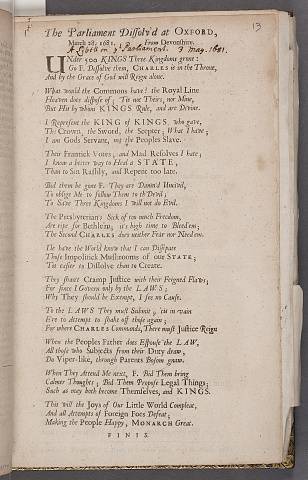 13
The Parliament Dissolv'd at OXFORD,
March 28. 1681. From Devonshire.
A Libell on yᵉ Parliament. 3 May. 1681.
UNder 500 KINGS Three Kingdoms grone:
Go F. Dissolve them, CHARLES is in the Throne,
And by the Grace of God will Reign alone.
What would the Commons have? the Royal Line
Heaven does dispose of; 'Tis not Theirs, nor Mine,
But His by whom KINGS Rule, and are Divine.
I Represent the KING of KINGS, who gave,
The Crown, the Sword, the Scepter; What I have;
I am Gods Servant, not the Peoples Slave.
Their Frantick Votes, and Mad Resolves I hate;
I know a better way to Heal a STATE,
Than to Sin Rashly, and Repent too late.
Bid them be gone F. They are Damn'd Uncivil,
To oblige Me to follow Them to th' Devil;
To Save Three Kingdoms I will not do Evil.
The Presbyterians Sick of too much Freedom,
Are ripe for Bethlem, it's high time to Bleed 'em;
The Second CHARLES does neither Fear nor Need 'em.
I'le have the World know that I can Dissipate
Those Impolitick Mushrooms of our STATE;
'Tis easier to Dissolve than to Create.
They shan't Cramp Justice with their Feigned Flaws;
For since I Govern only by the LAWS;
Why They should be Exempt, I see no Cause.
To the LAWS They must Submit, 'tis in vain
E're to attempt to shake off those again;
For where CHARLES Commands, There must Justice Reign
When the Peoples Father does Espouse the LAW,
All those who Subjects from their Duty draw,
Do Viper-like, through Parents Bosome gnaw.
When They Attend Me next, F. Bid Them bring
Calmer Thoughts; Bid Them Propose Legal Things;
Such as may both become Themselves, and KINGS.
This will the Joys of Our Little World Compleat,
And all Attempts of Foreign Foes Defeat;
Making the People Happy, MONARCH Great.
FINIS.